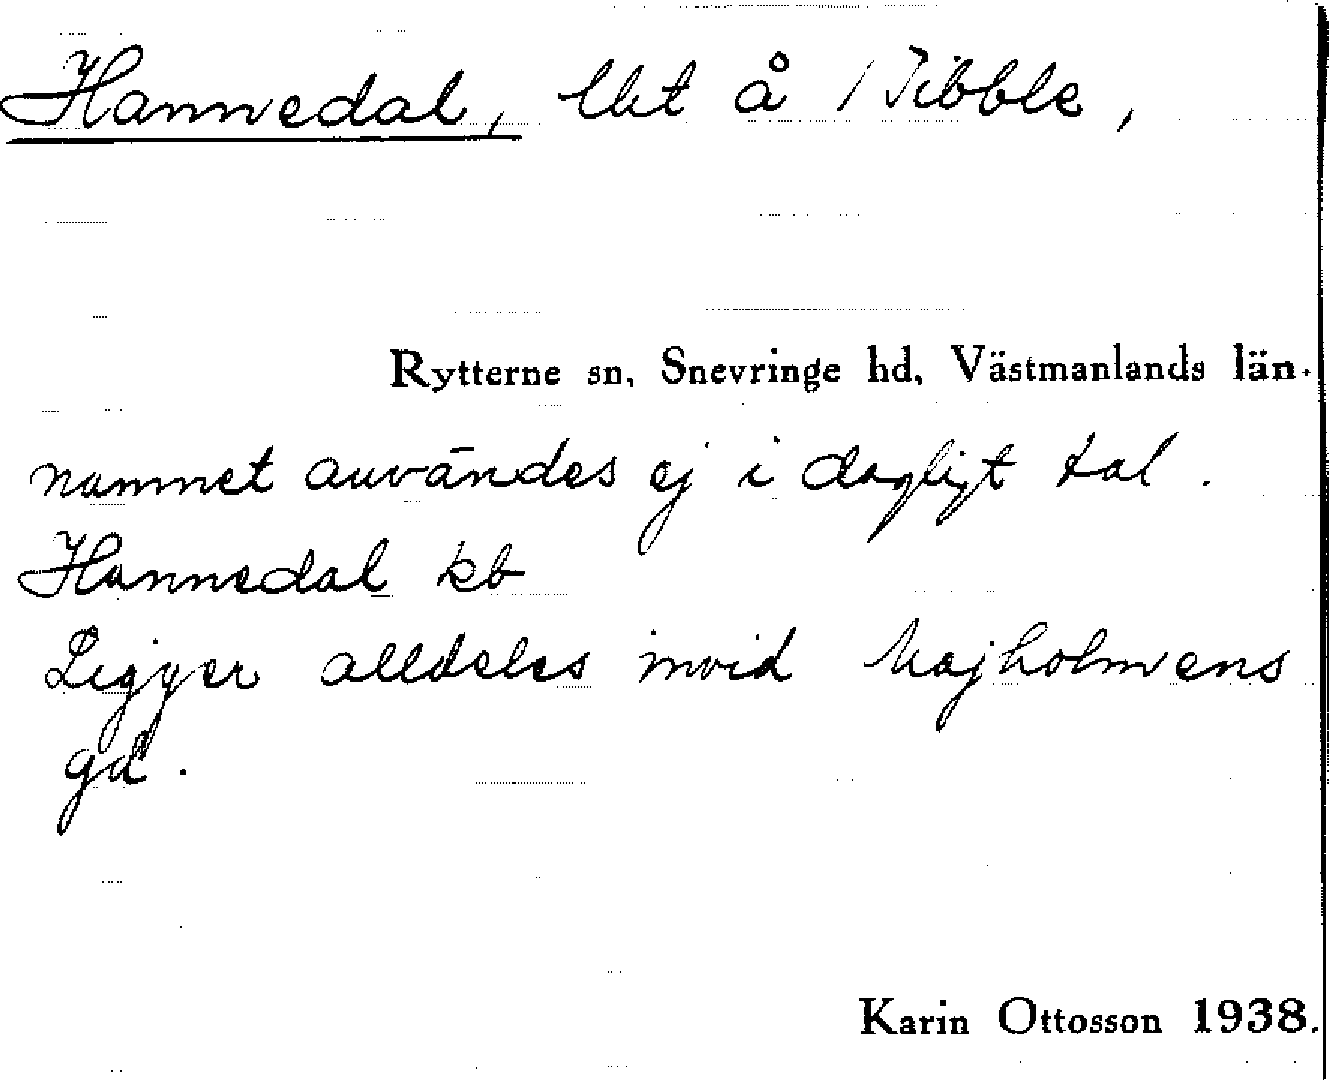 Hannedal, lht å 1 Tibble,
Rytterne sn, Snevringe hd, Västmanlands län.
namnet användes ej i dagligt tal.
Hannedal kb
Ligger alldeles invid Majholmens
gd.
Karin Ottosson 1938.